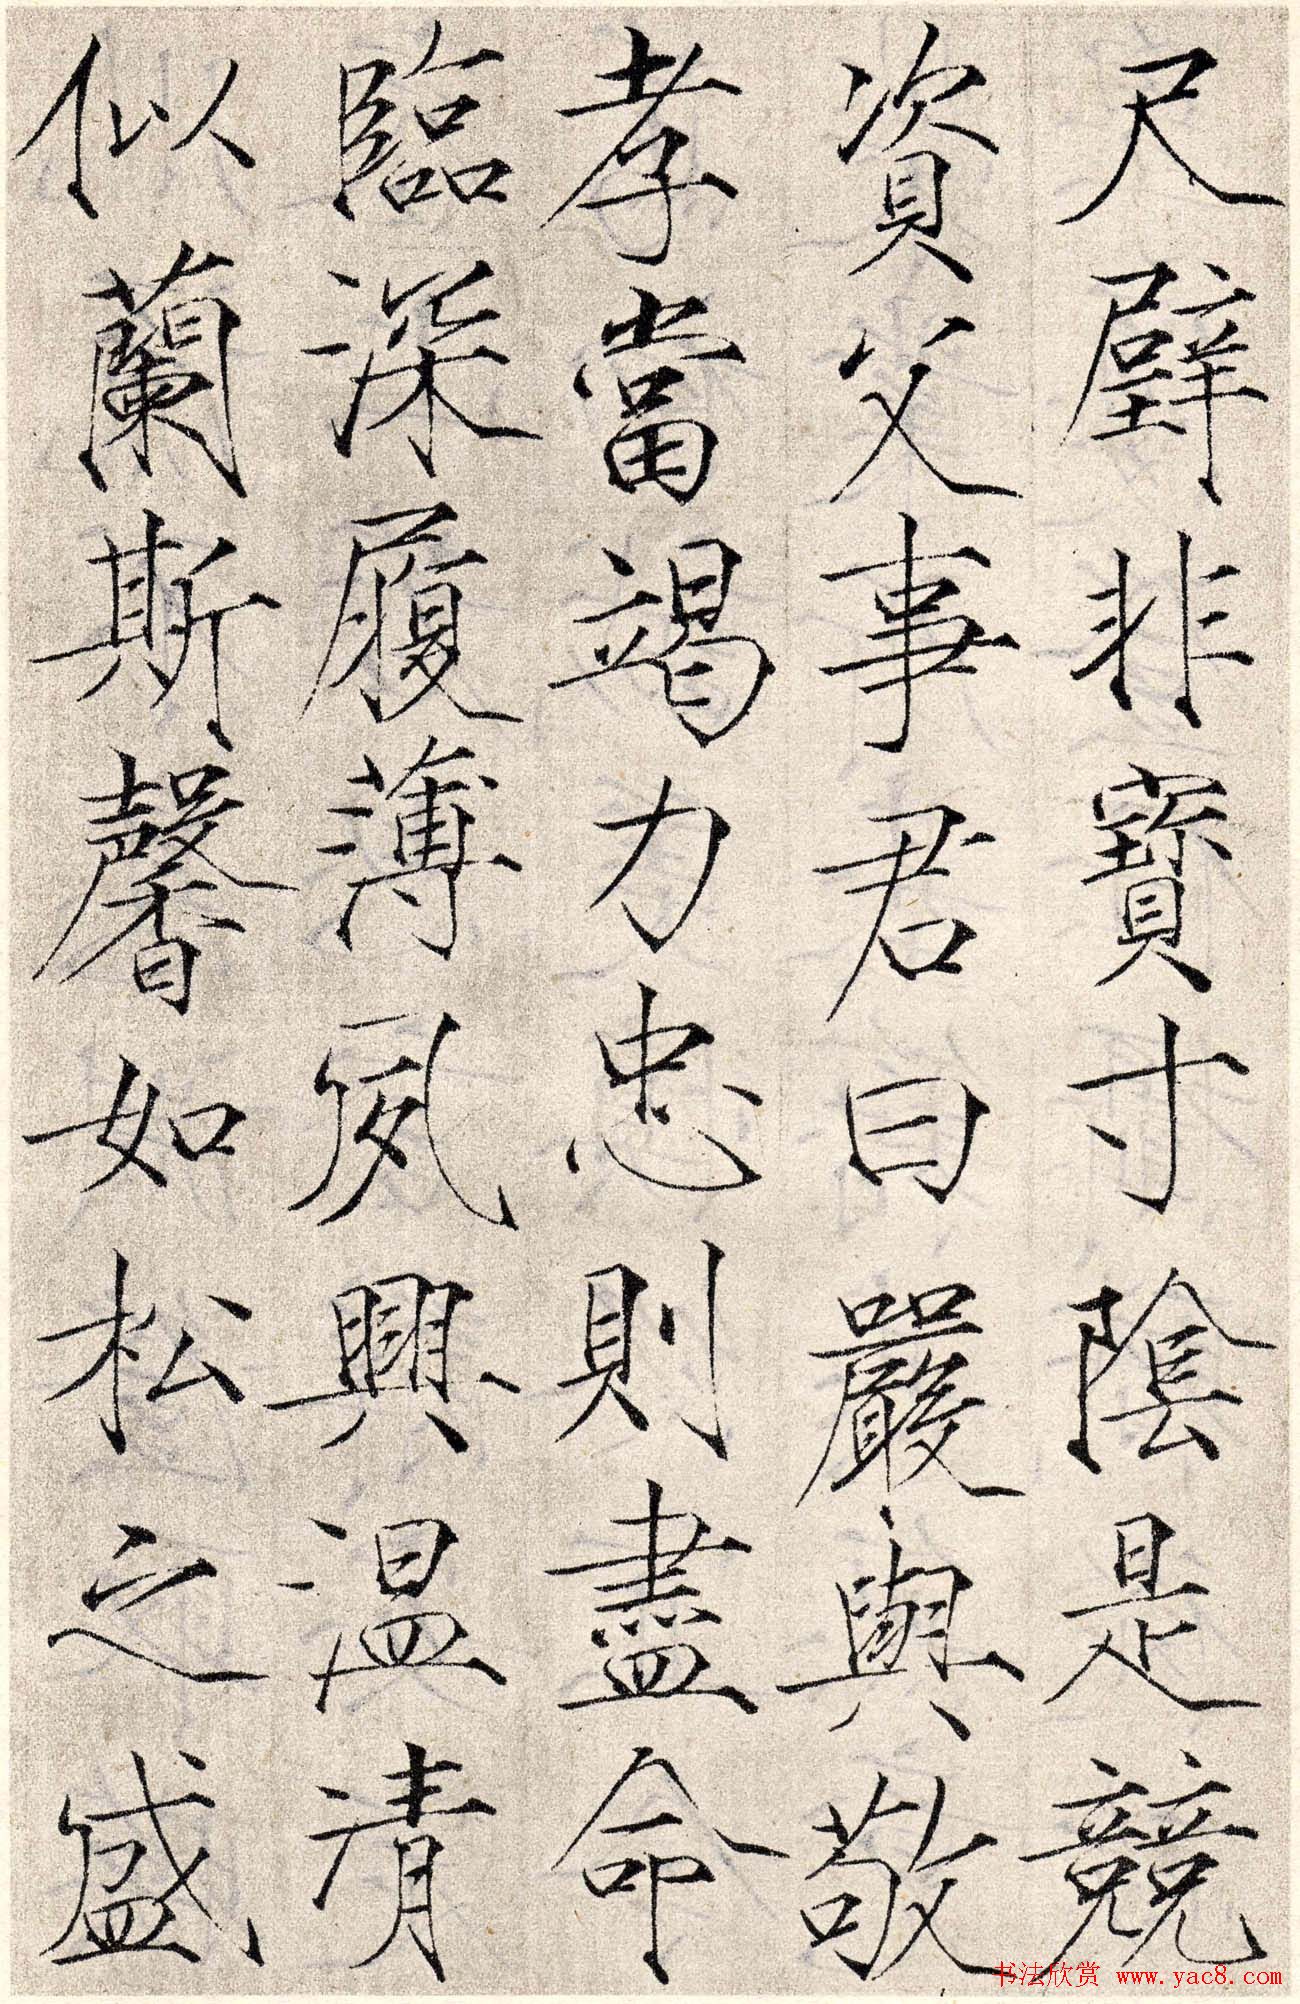 尺璧非寶寸陰是競
資父事君曰嚴與敬
孝當竭力忠則盡命
臨深履薄夙興温凊
似蘭斯馨如松之盛
书法欣赏 www.yac8.com